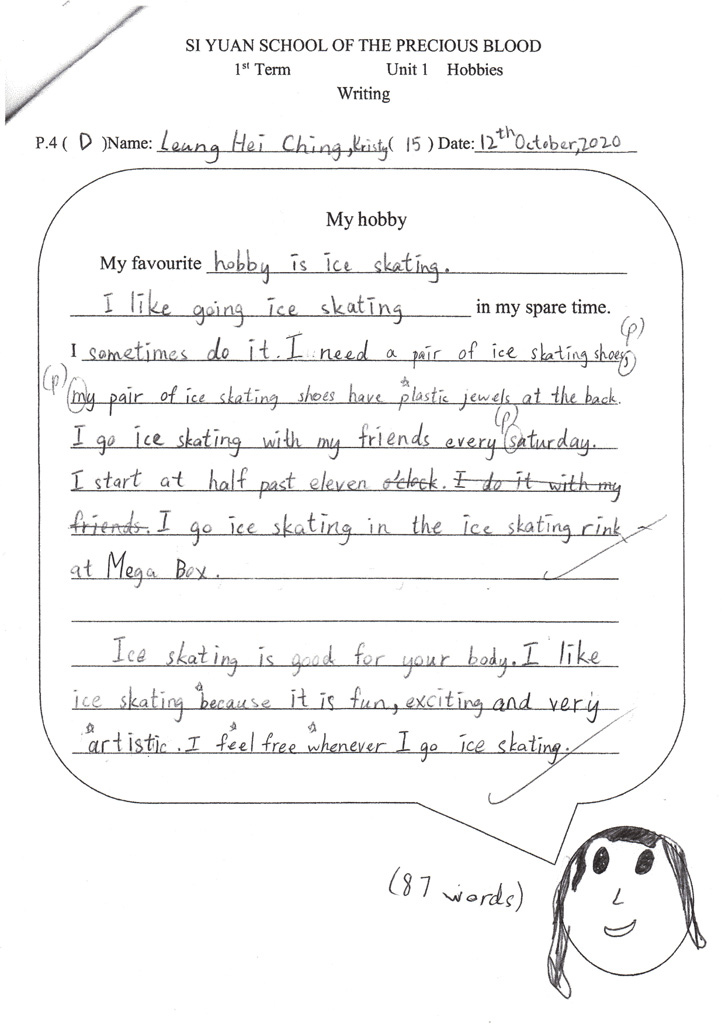 SI YUAN SCHOOL OF THE PRECIOUS BLOOD
1st Term Unit 1 Hobbies
Writing
P.4 ( D )Name: Leung Hei Ching, Kristy ( 15 ) Date: 12th October, 2020
My hobby
My favourite hobby is ice skating.
I like going ice skating in my spare time.
(p)
I sometimes do it. I need a pair of ice skating shoes,
(p) my pair of ice skating shoes have plastic jewels at the back.
(p)
I go ice skating with my friends every saturday.
I start at half past eleven o'clock. I do it with my
friends. I go ice skating in the ice skating rink
at Mega Box.
Ice skating is good for your body. I like
ice skating because it is fun, exciting and very
artistic. I feel free whenever I go ice skating.
(87 words)